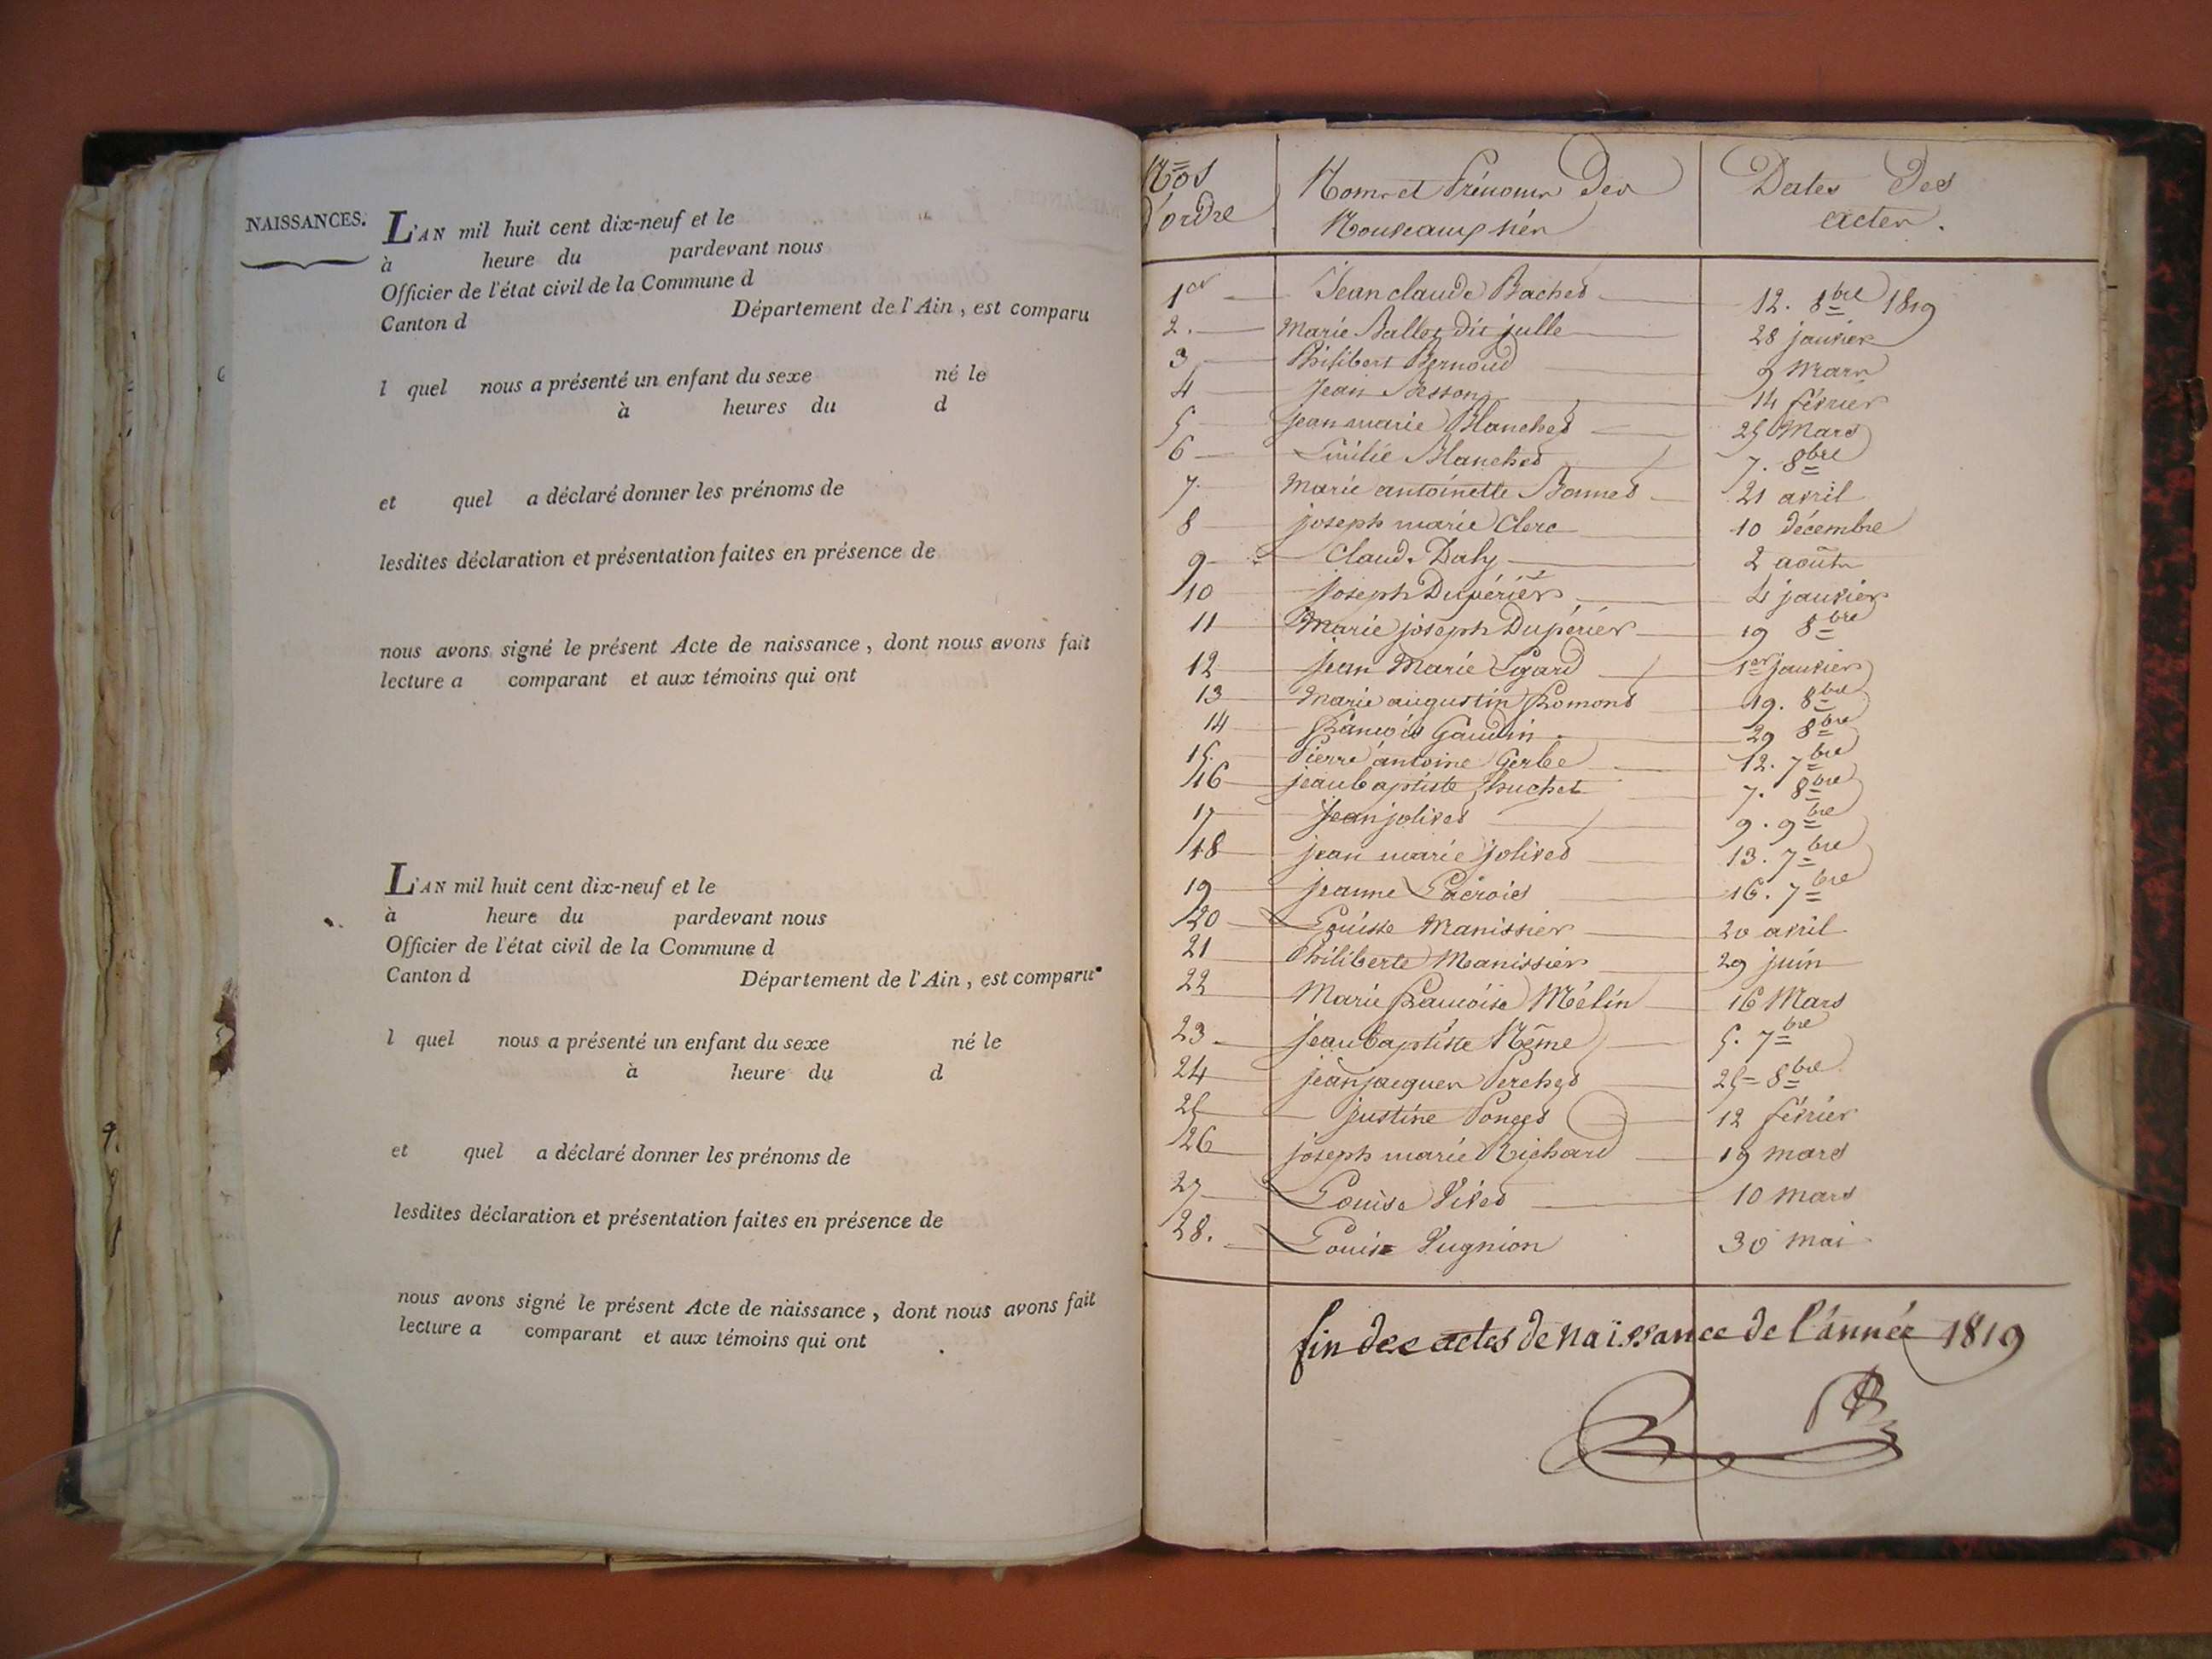 NAISSANCES.
L'AN mil huit cent dix-neuf et le
à heure du pardevant nous
Officier de l'état civil de la Commune d
Canton d Département de l'Ain, est comparu
l quel nous a présenté un enfant du sexe né le
à heures du d
et quel a déclaré donner les prénoms de
lesdites déclaration et présentation faites en présence de
nous avons signé le présent Acte de naissance, dont nous avons fait
lecture a comparant et aux témoins qui ont
L'AN mil huit cent dix-neuf et le
à heure du pardevant nous
Officier de l'état civil de la Commune d
Canton d Département de l'Ain, est comparu
l quel nous a présenté un enfant du sexe né le
à heure du d
et quel a déclaré donner les prénoms de
lesdites déclaration et présentation faites en présence de
nous avons signé le présent Acte de naissance, dont nous avons fait
lecture a comparant et aux témoins qui ont
Nos Noms et Prénoms Des Dates Des
d'ordre Nouveaux nés actes.
1er Jean claude Bachet 12. 8bre 1819
2. Marie Ballet dit julle 28 janvier
3 Philibert Bernoud 9 Mars
4 Jean Besson 14 février
5 jean marie Blanchet 25 Mars
6 Emilie Blanchet 7. 8bre
7 Marie antoinette Bonnet 21 avril
8 joseph marie Clerc 10 décembre
9 Claude Daly 2 août
10 joseph Dupérier 4 janvier
11 Marie joseph Dupérier 19 8bre
12 jean Marie Egard 1er janvier
13 Marie augustin Fromont 19. 8bre
14 François Gaudin 29 8bre
15. Pierre antoine Gerbe 12. 7bre
16 jean baptiste huchet 7. 8bre
17 jean jolivet 9. 9bre
18 jean marie jolivet 13. 7bre
19 jeanne Lacroix 16. 7bre
20 Louise Manissier 20 avril
21 Philiberte Manissier 29 juin
22 Marie Françoise Mélin 16 Mars
23 jean baptiste Même 5. 7bre
24 jean jacques Perchet 25 = 8bre
25 justine Ponget 12 février
26 joseph marie Richard 19 mars
27 Louise Vivet 10 mars
28. Louise Vugnion 30 mai
fin des actes de naissance de l'année 1819